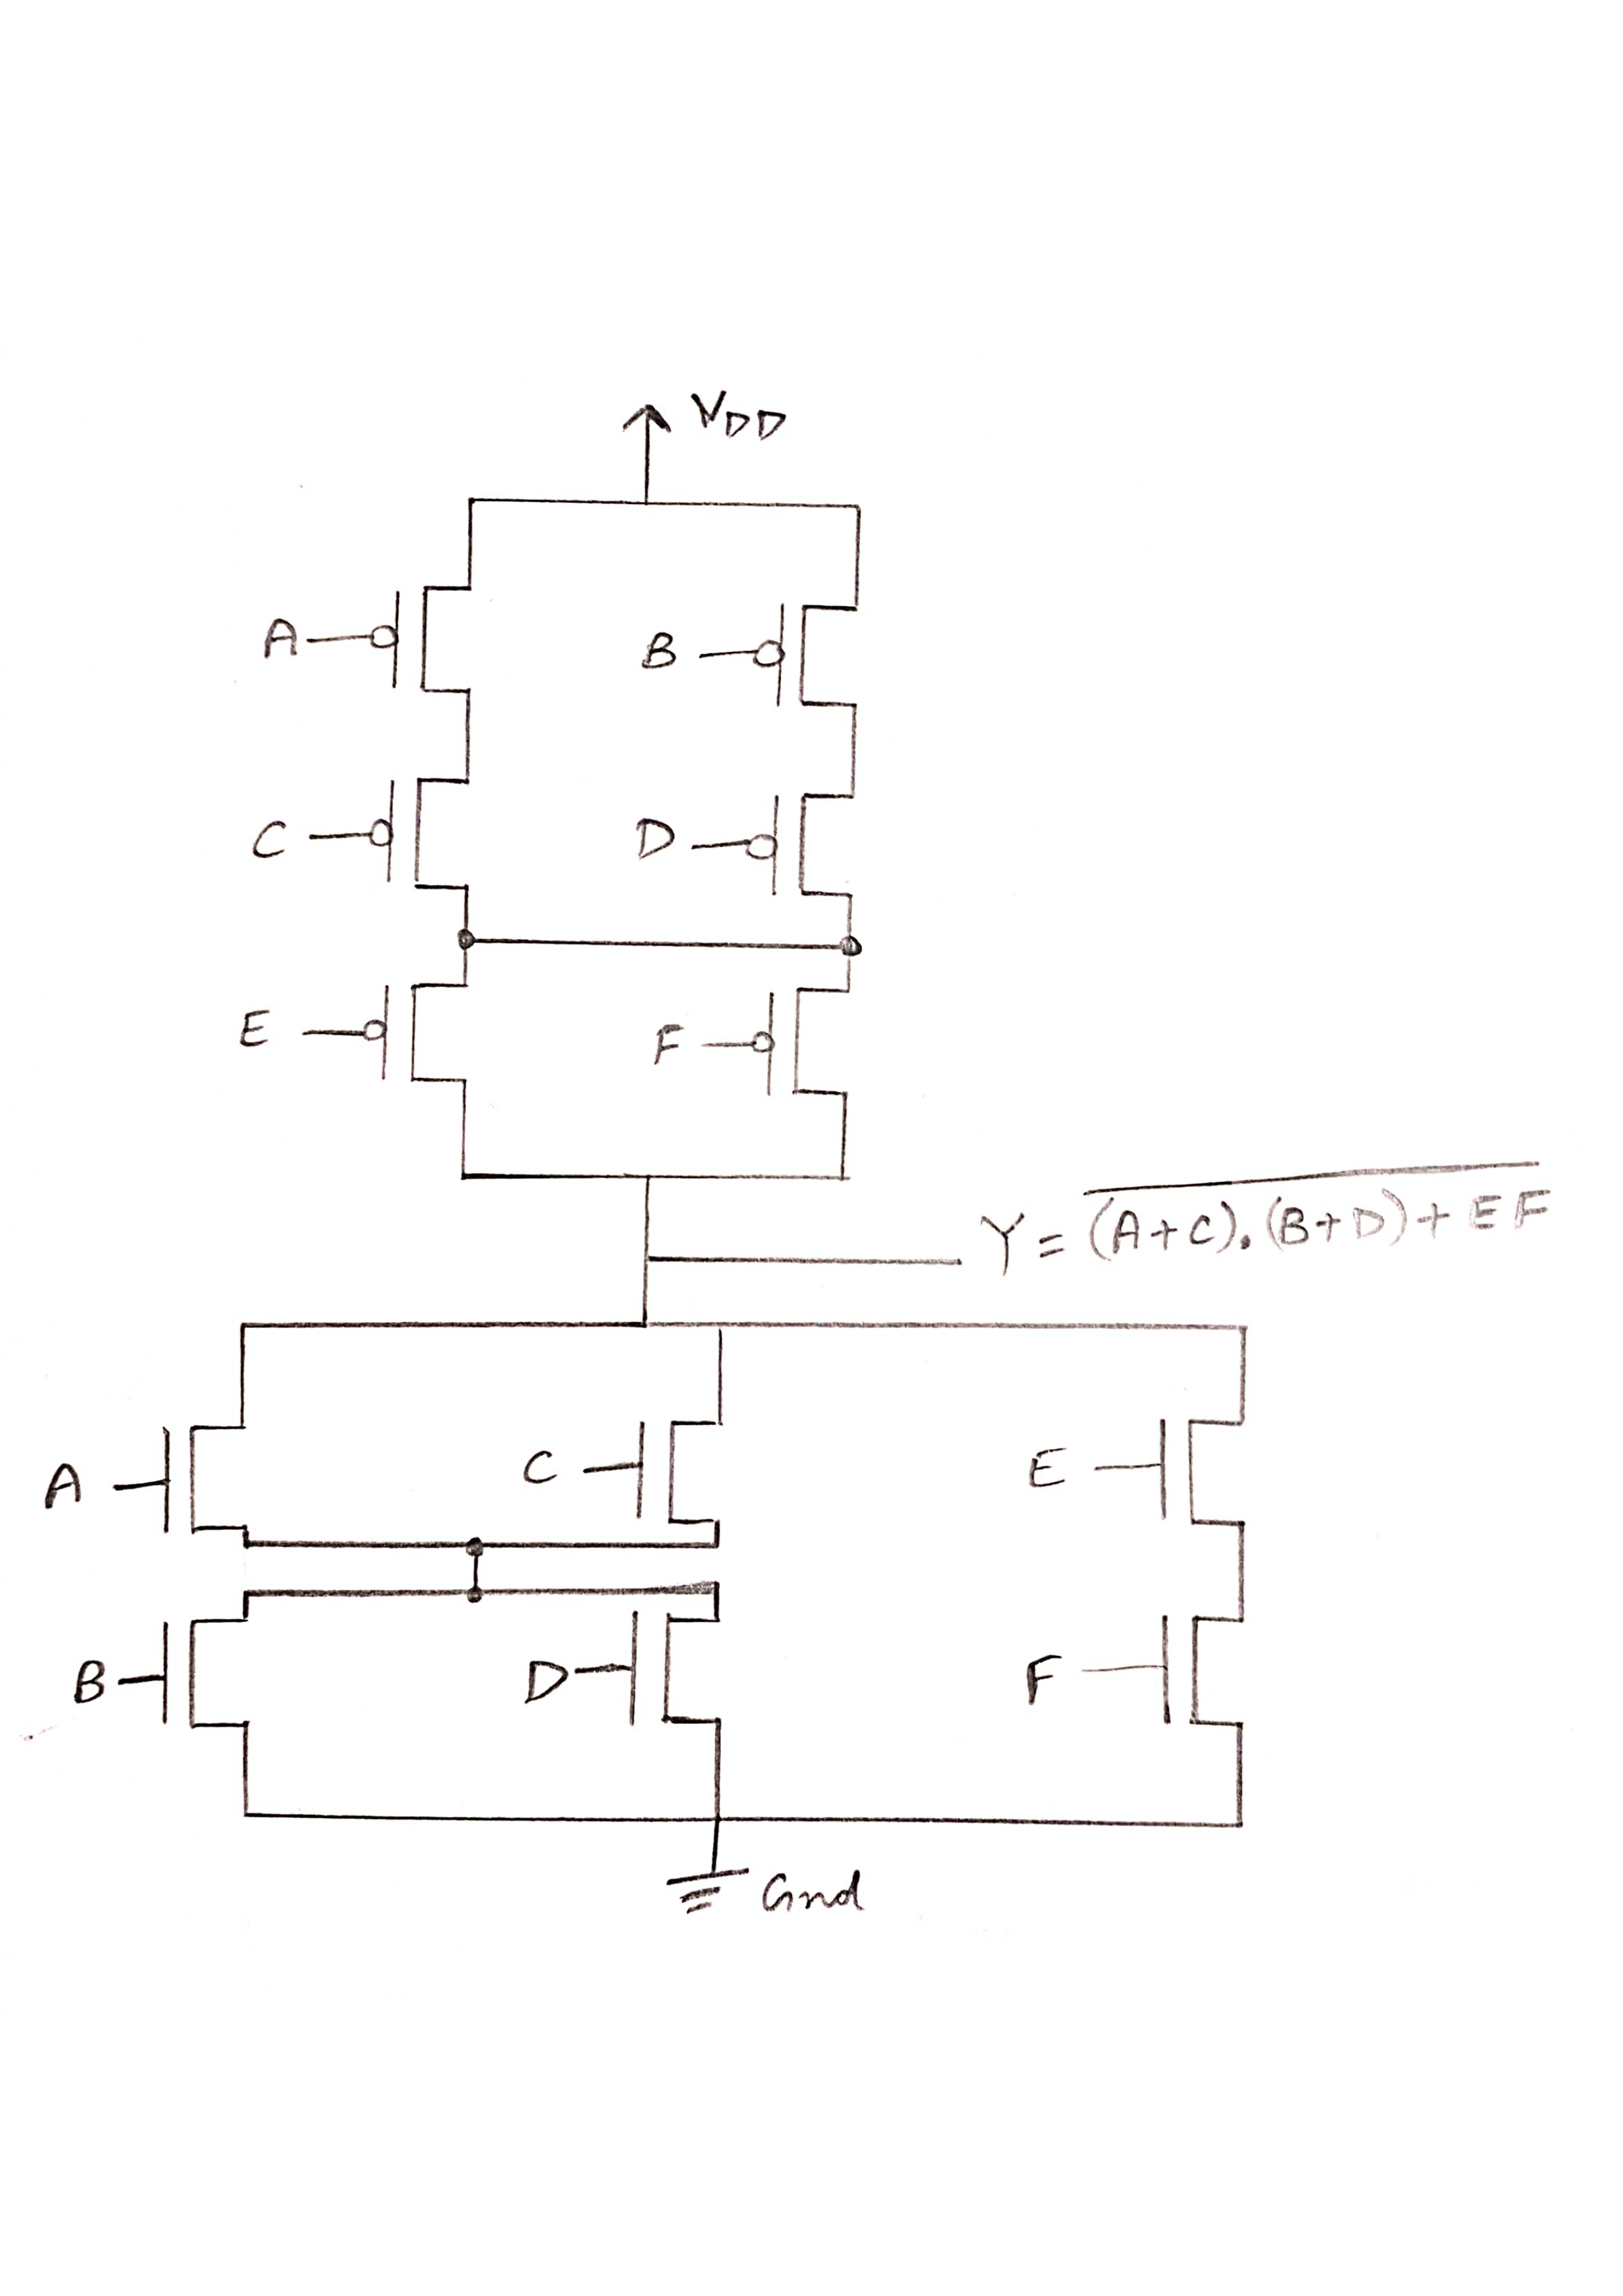 VDD
A
B
C
D
E
F
Y = \overline{(A+C).(B+D)+EF}
A
C
E
B
D
F
Gnd